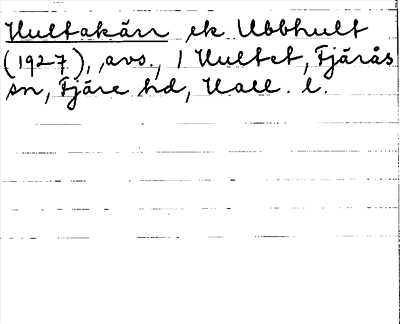 Hultakärr ek Ubbhult
(1927), avs., 1 Hultet, Fjärås
sn, Fjäre hd, Hall. l.